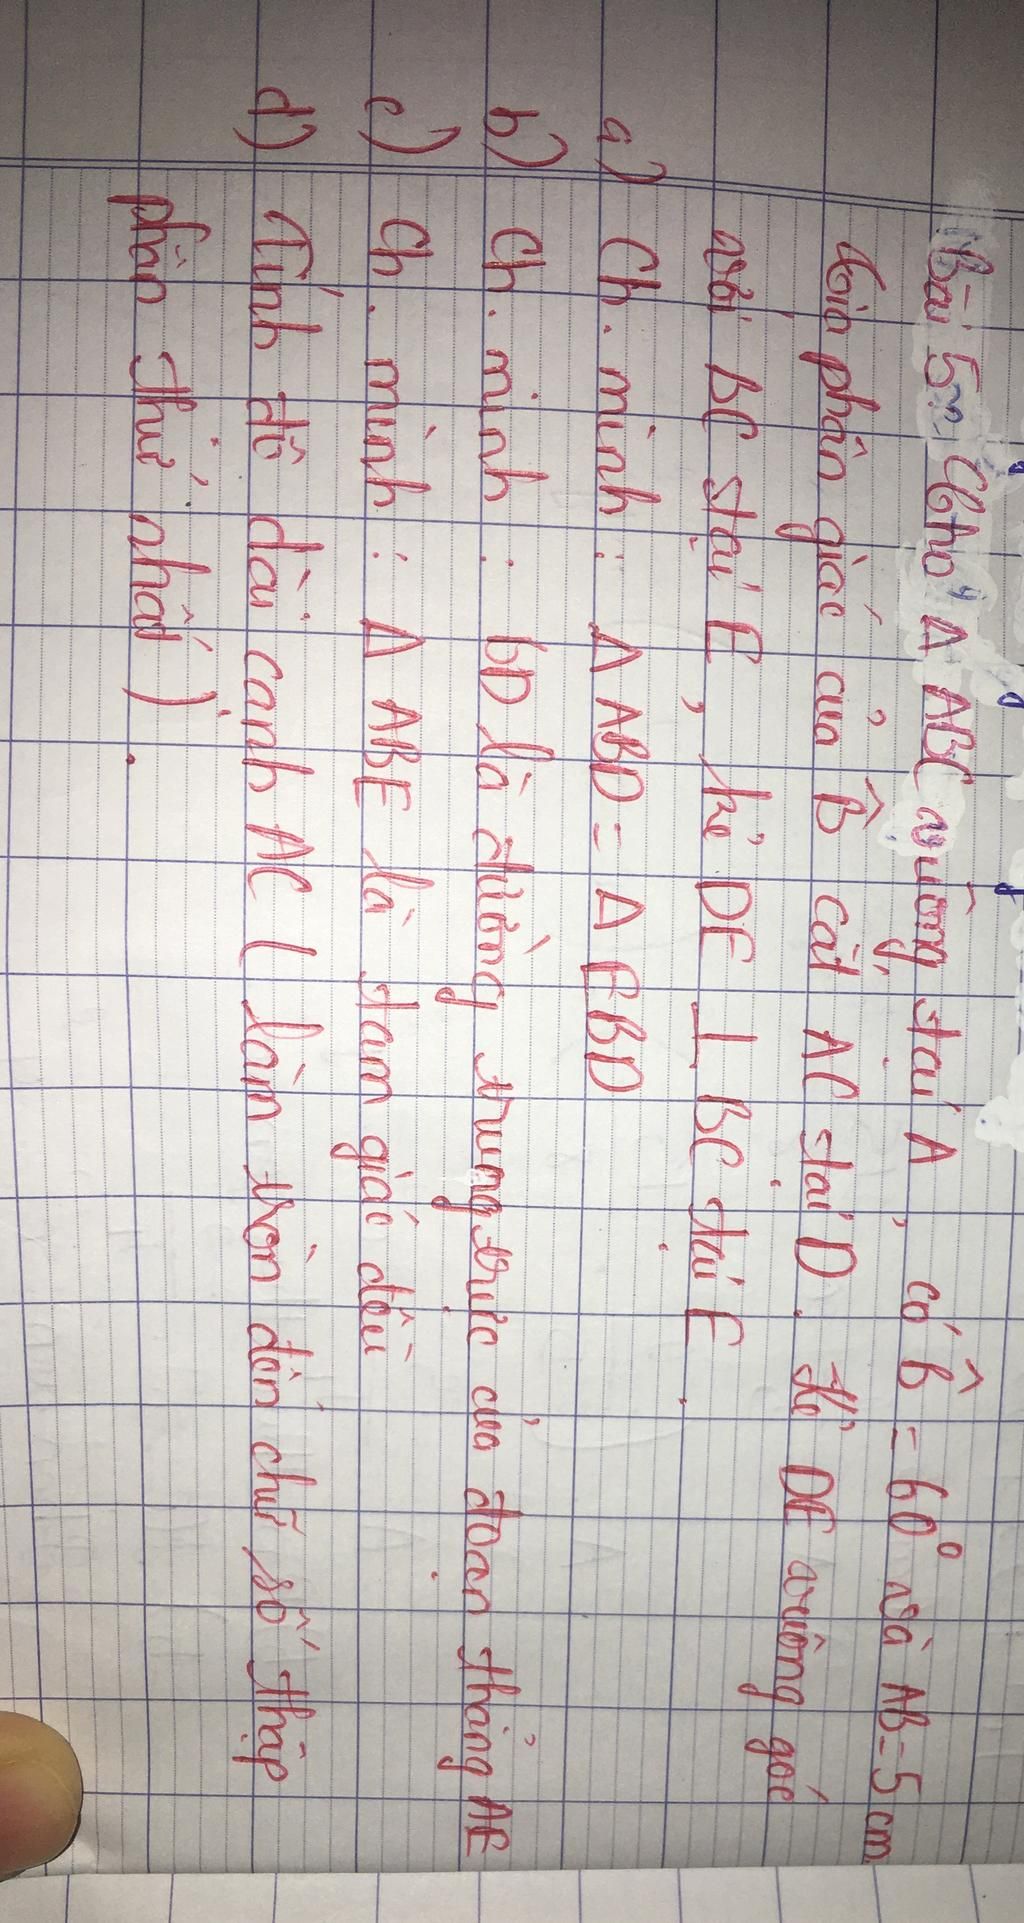 Bài 5: Cho Δ ABC vuông tại A, có B̂ = 60° và AB = 5 cm
tia phân giác của B̂ cắt AC tại D. Kẻ DE vuông góc
với BC tại E, kẻ DE ⊥ BC tại E.
a) Ch. minh: Δ ABD = Δ EBD
b) Ch. minh: bD là đường trung trực của đoạn thẳng AE
c) Ch. minh: Δ ABE là tam giác đều
d) Tính độ dài cạnh AC (làm tròn đến chữ số thập
phân thứ nhất).